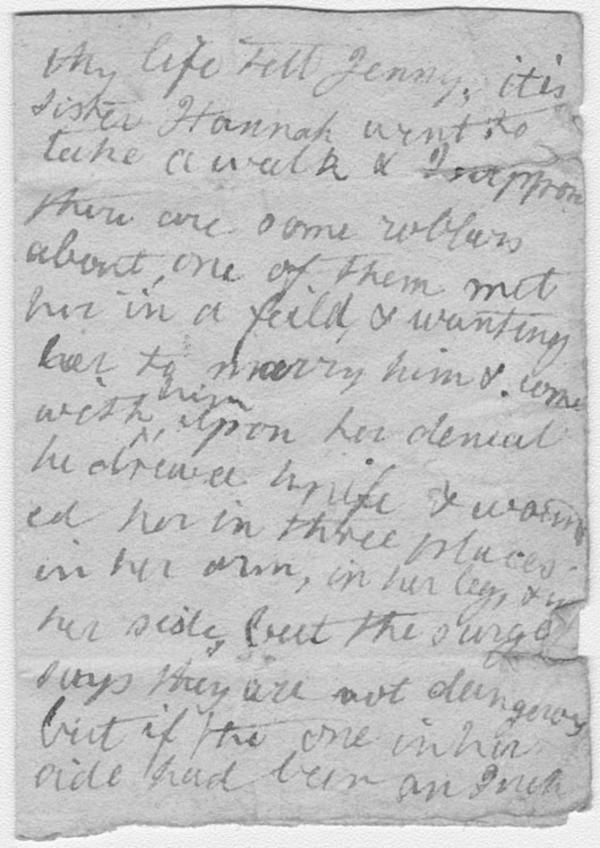 my life Tell Jenny, it is
sister Hannah went to
take a walk & I suppose
there are some robbers
about, one of them met
her in a feild, & wanting
her to marry him & come
with him, Upon her denial
he drew a knife & wound
ed her in three places
in her arm, in her leg, & in
her side, but the surge
says they are not dangerous
but if the one in her
side had been an Inch